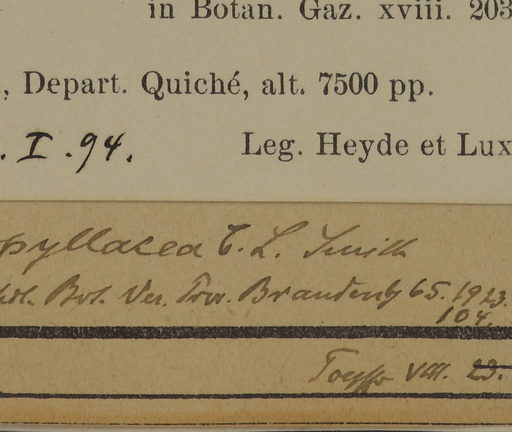 in Botan. Gaz. xviii. 203
, Depart. Quiché, alt. 7500 pp.
. I. 94. Leg. Heyde et Lux
pyllacea C. L. Smith
Bot. Ver. Prov. Brandenbg 65. 1923.
104.
VIII. 23.